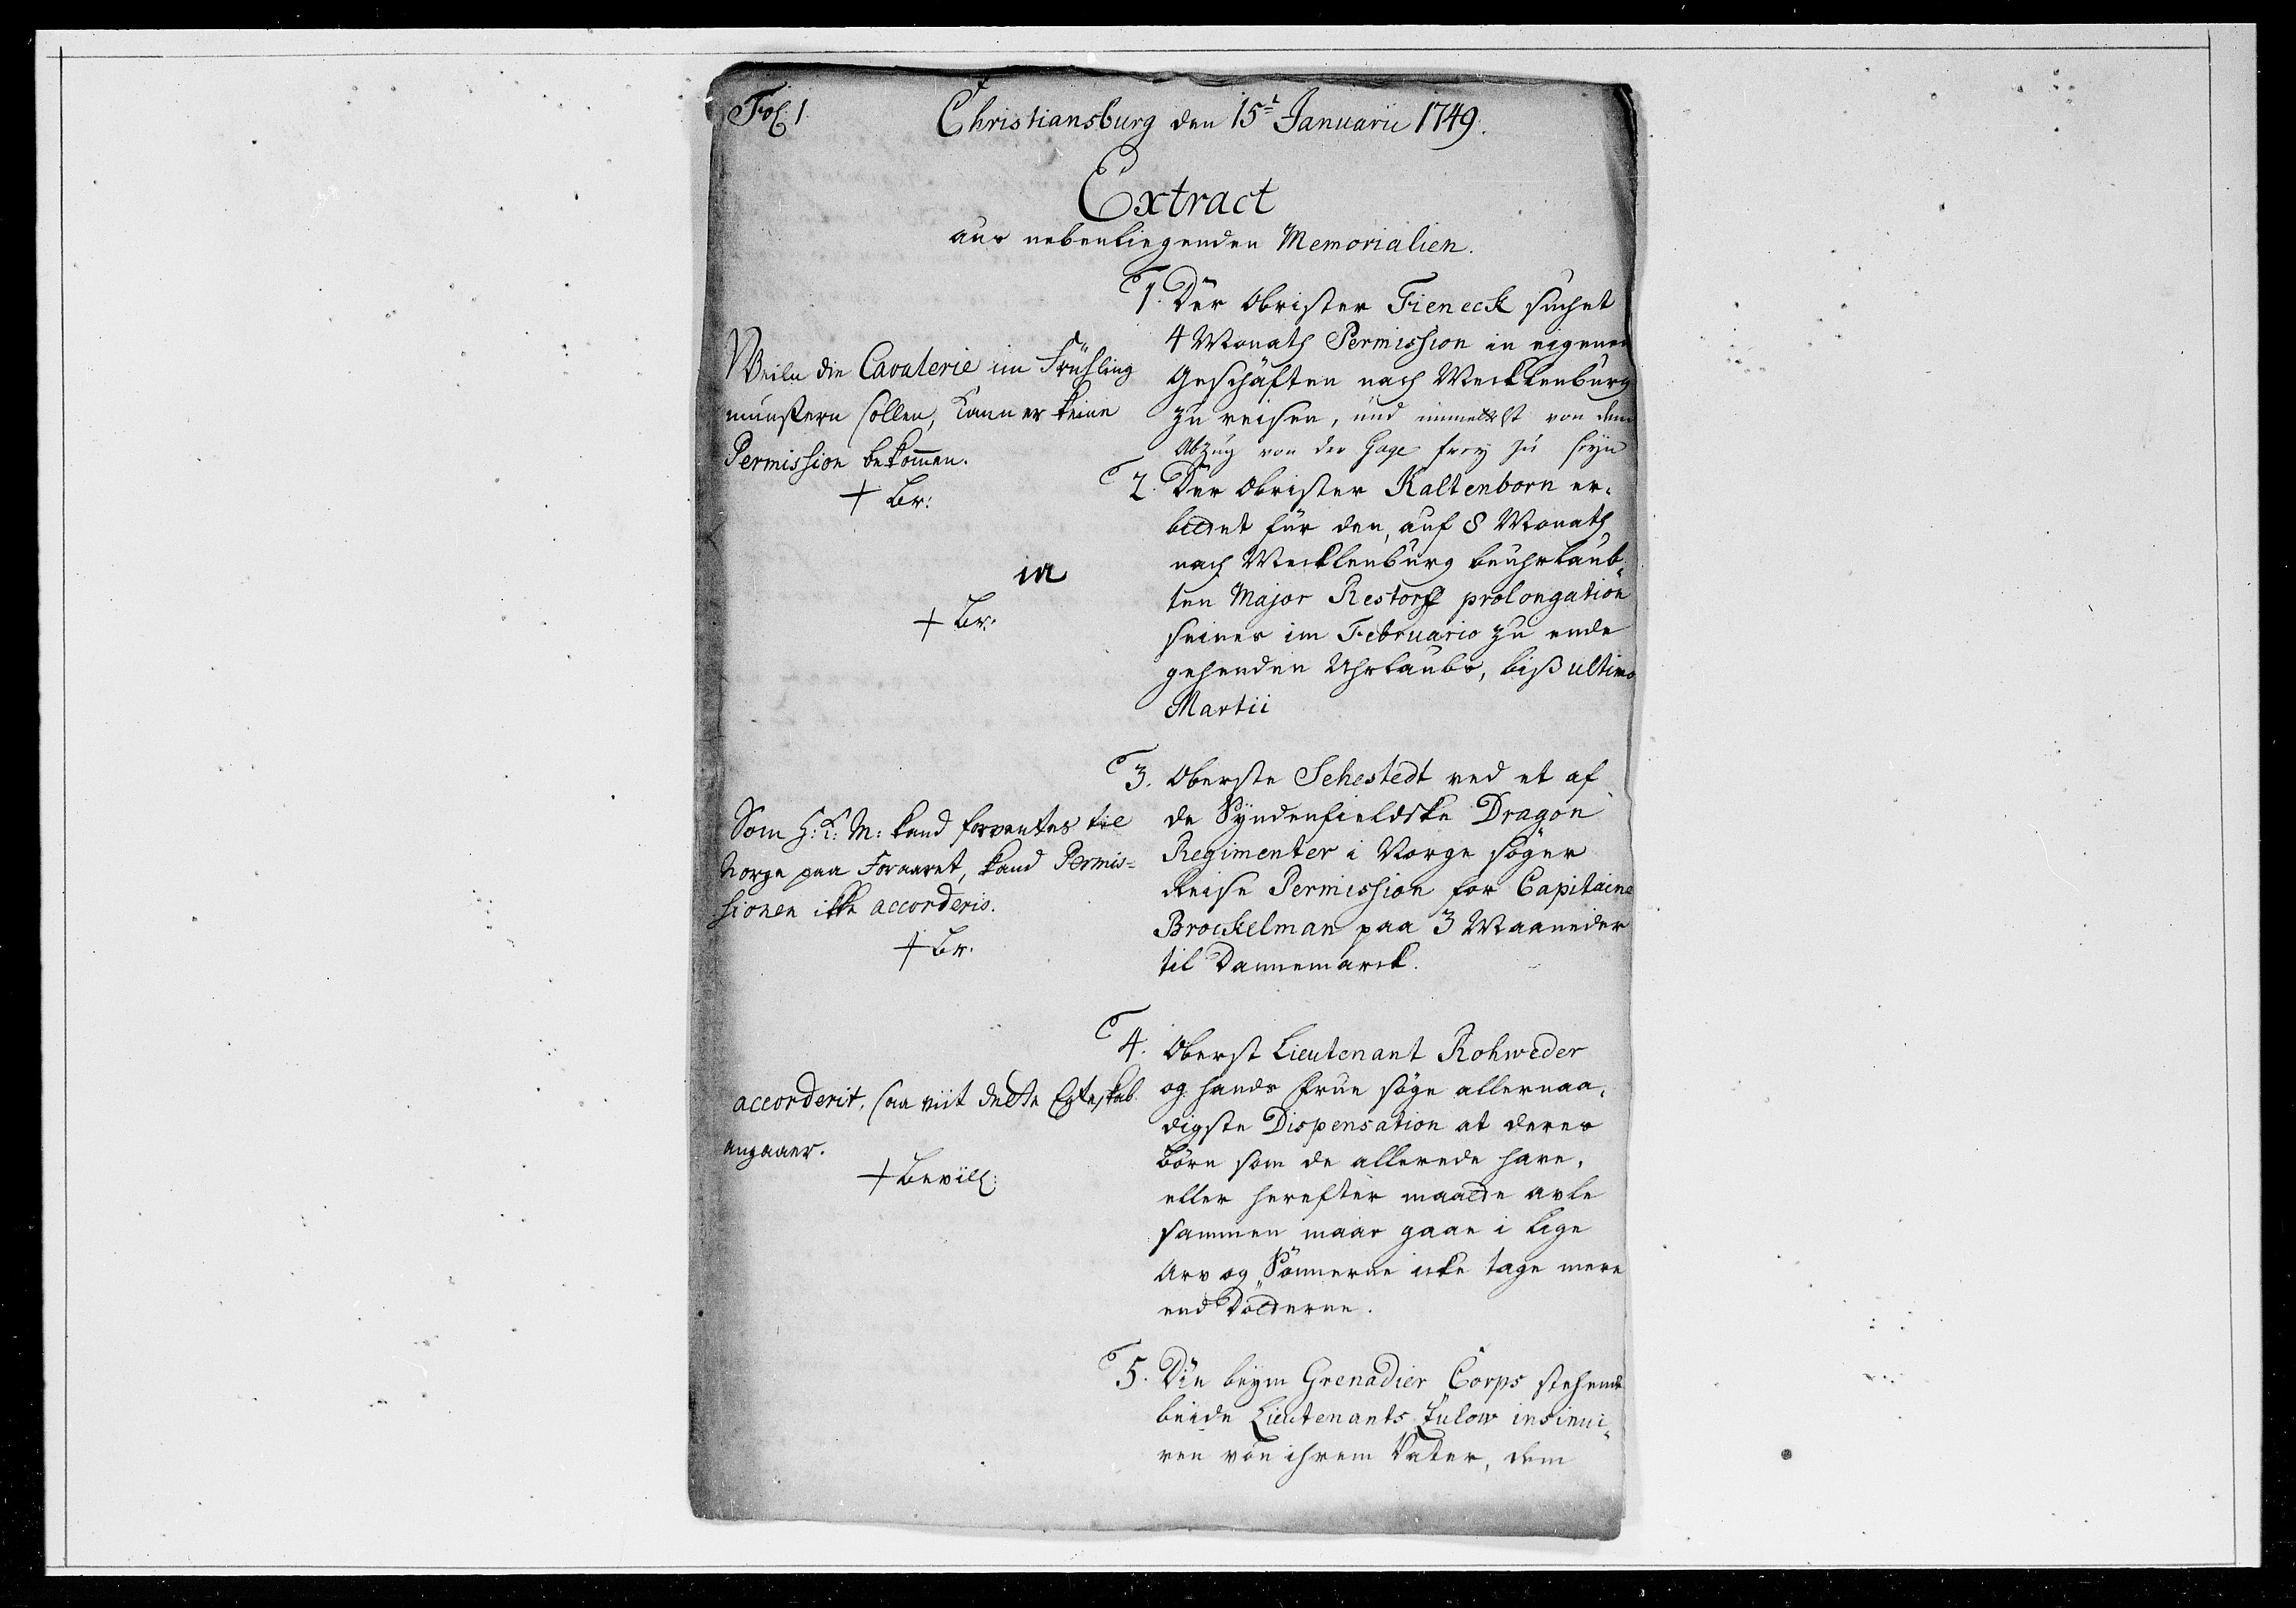 Fol: 1.
Christiansburg den 15t Januarii 1749.
Extract
aus nebenliegenden Memorialien.
1. Der Obrister Fieneck suchet
4 Monath Permission in eigenen
Geschäften nach Mecklenburg
zu reisen, und immittelst von dem
Abzug von der Gage frey zu seyn
Weiln die Cavalerie im Frühling
munstern sollen, kann er keine
Permission bekommen.
+ Br:
2. Der Obrister Kaltenborn er-
bittet für den, auf 8 Monath
nach Mecklenburg beuhrlaub-
ten Major Restorff prolongation
seines im Februario zu ende
gehenden Uhrlaubs, biß ultimo
Martii
ia
+ Br:
3. Oberste Sehestedt ved et af
de Syndenfieldske Dragon
Regimenter i Norge søger
Reise Permission for Capitaine
Brockelman paa 3 Maaneder
til Dannemarck.
Som H: K: M: kand forventes til
Norge paa Foraaret, kand Permis-
sionen ikke accorderis.
+ Br.
4. Oberst Lieutenant Rohweder
og hands Frue søge allernaa-
digste Dispensation at deres
Børn som de allerede have,
eller herefter maatte avle
sammen maae gaae i lige
Arv og Sønnerne icke tage mere
end Døttrene.
accorderit, saa viit dette Egteskab
angaaer.
+ Bevill:
5. Die beym Grenadier Corps stehende
beide Lieutenants Zülow insinui-
ren von ihrem Vater, dem